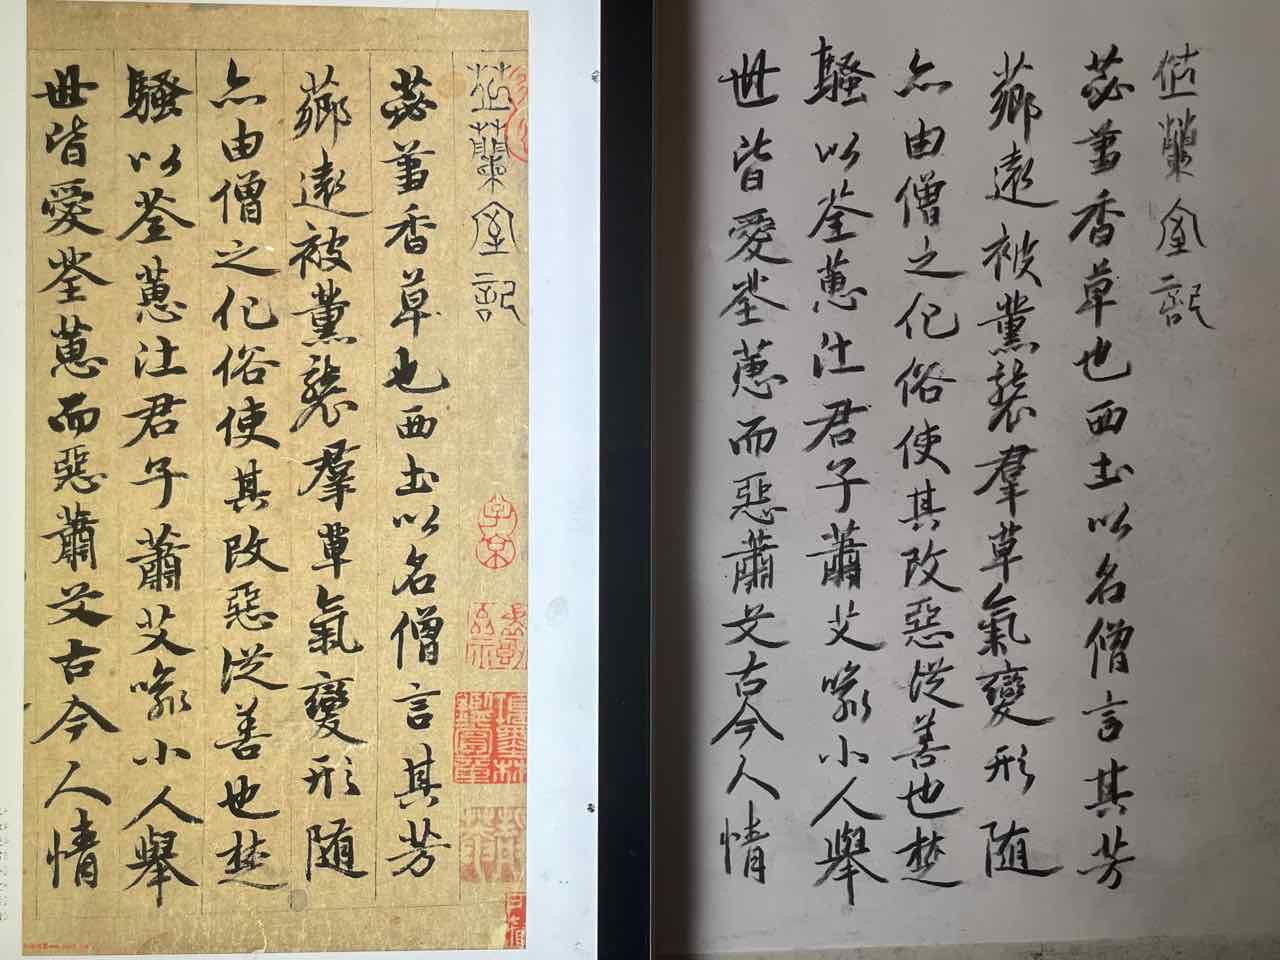 蘭室記
苾蒭香草也西土以名僧言其芳
薌遠被薰襲羣草氣變形随
亦由僧之化俗使其改惡從善也楚
騷以荃蕙君子蕭艾喻小人舉
世皆愛荃蕙而惡蕭艾古今人情
蘭室記
苾蒭香草也西土以名僧言其芳
薌遠被薰襲羣草氣變形随
亦由僧之化俗使其改惡從善也楚
騷以荃蕙君子蕭艾喻小人舉
世皆愛荃蕙而惡蕭艾古今人情